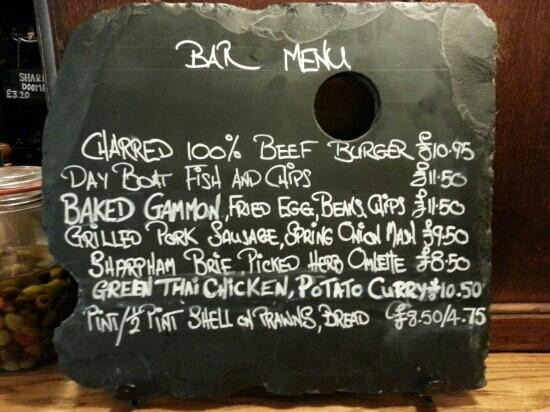 BAR MENU
CHARRED 100% BEEF BURGER £10.95
DAY BOAT FISH AND CHIPS £11.50
BAKED GAMMON, FRIED EGG, BEANS, CHIPS £11.50
GRILLED PORK SAUSAGE, SPRING ONION MASH £9.50
SHARPHAM BRIE, PICKED HERB OMLETTE £8.50
GREEN THAI CHICKEN, POTATO CURRY £10.50
PINT/½ PINT SHELL ON PRAWNS, BREAD £8.50/4.75
SHARP
DOOM
£3.20